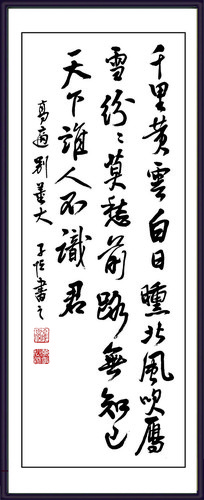 千里黄雲白日曛北風吹雁
雪紛々莫愁前路無知己
天下誰人不識君
高適别董大 子恒書之